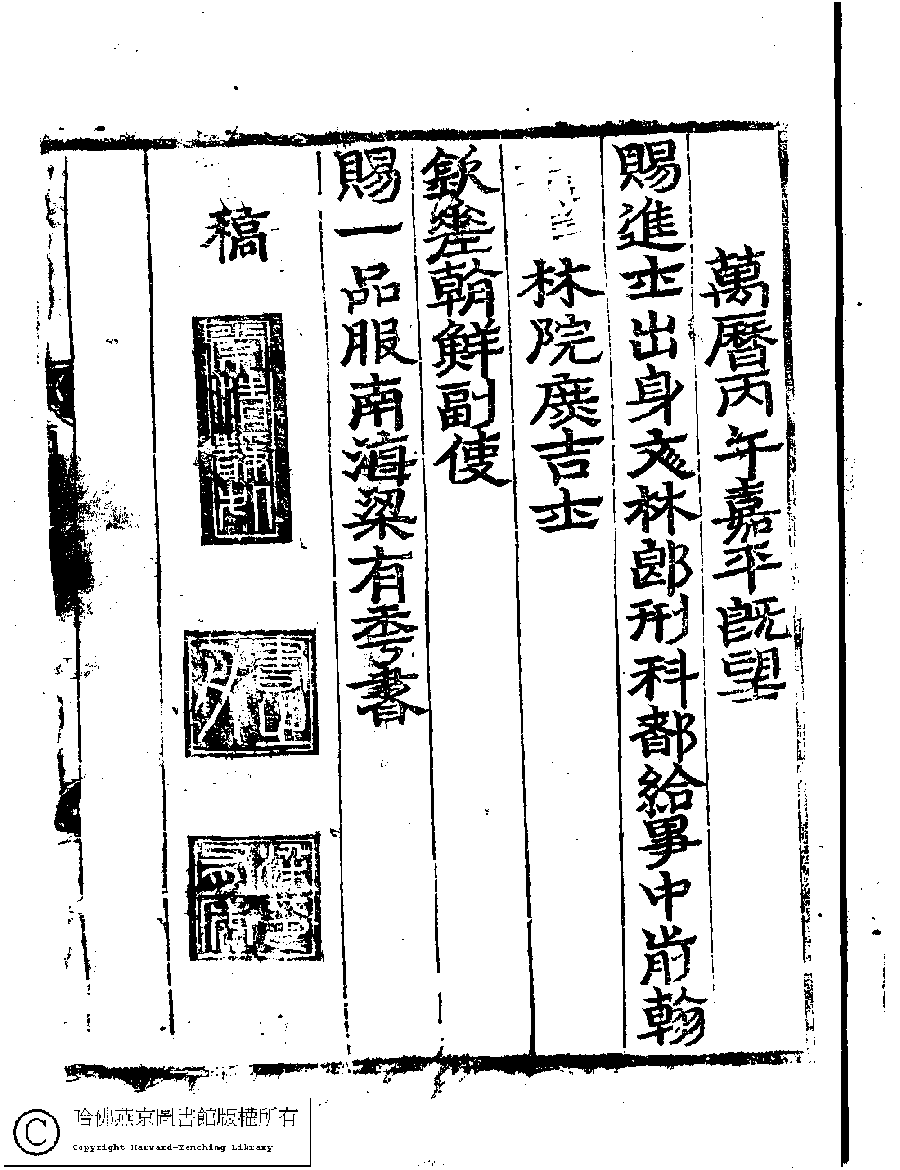 萬曆丙午嘉平既望
賜進士出身文林郎刑科都給事中前翰
林院庶吉士
欽差朝鮮副使
賜一品服南海梁有年書
稿
哈佛燕京圖書館版權所有
Copyright Harvard-Yenching Library